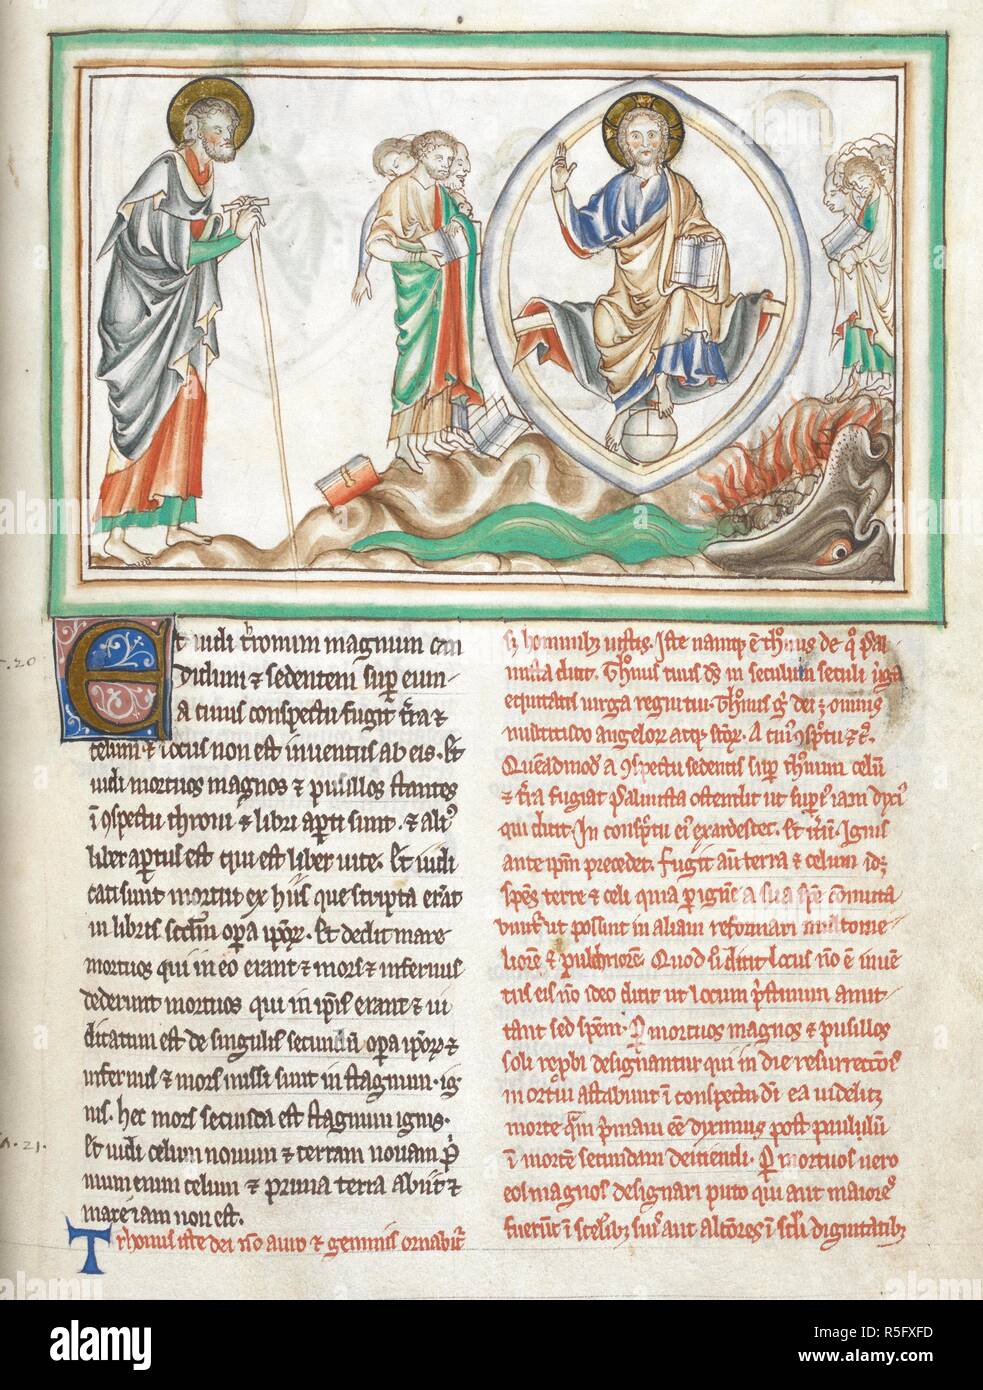 Et uidi thronum magnum can
didum ⁊ sedentem super eum
a cuius conspectu fugit terra ⁊
celum ⁊ locus non est inuentus ab eis. Et
uidi mortuos magnos ⁊ pusillos stantes
i conspectu throni ⁊ libri apti sunt. ⁊ ali⁹
liber apertus est qui est liber uite. Et iudi
cati sunt mortui ex hiis que scripta erāt
in libris scdm opa ipoꝝ. Et dedit mare
mortuos qui in eo erant ⁊ mors ⁊ infernus
dederunt mortuos qui in ipsis erant ⁊ iu
dicatum est de singulis secundū opa ipoꝝ ⁊
infernus ⁊ mors missi sunt in stagnum ig
nis. hec mors secunda est stagnum ignis.
Et uidi celum nouum ⁊ terram nouam p̄
mum enim celum ⁊ prima terra abiit ⁊
mare iam non est.
Thronus iste dei nō auro ⁊ gemmis ornabit̄
s; hominibꝫ iustis. Iste namqꝫ ē thōnus de q° psal
mista dicit. Thōnus tuus ds in seculum seculi uirga
equitatis uirga regni tui.
multitudo angeloꝝ
celū
⁊ tra fugiat psalmista ostendit ut supͥ iam dixi
qui dicit. In conspectu ei⁹ exardescet. Et itū. Ignis
ante ipm precedet. Fugit aū terra ⁊ celum id;
spēs terre ⁊ celi quia p ignē a sua spē cōmuta
bunt̄ ut possint in aliam reformari multo me
liorē ⁊ pulchriorē. Quod s; dicit locus nō ē inuē
tus eis nō ideo dicit ut locum pristinum amit
tant sed spēm. P mortuos magnos ⁊ pusillos
soli repbi designantur qui in die resurrectōis
mortui astabunt i conspectu dni ea uidelicꝫ
morte qm p̄mam eē diximus post paululū
i mortē secundam deiciendi. P mortuos uero
eos magnos designari puto qui aut maiores
fuerūt i sceleribꝫ suis aut altiores i scli dignitatibꝫ
A. 20
A. 21.
alamy
R5FXFD
www.alamy.com